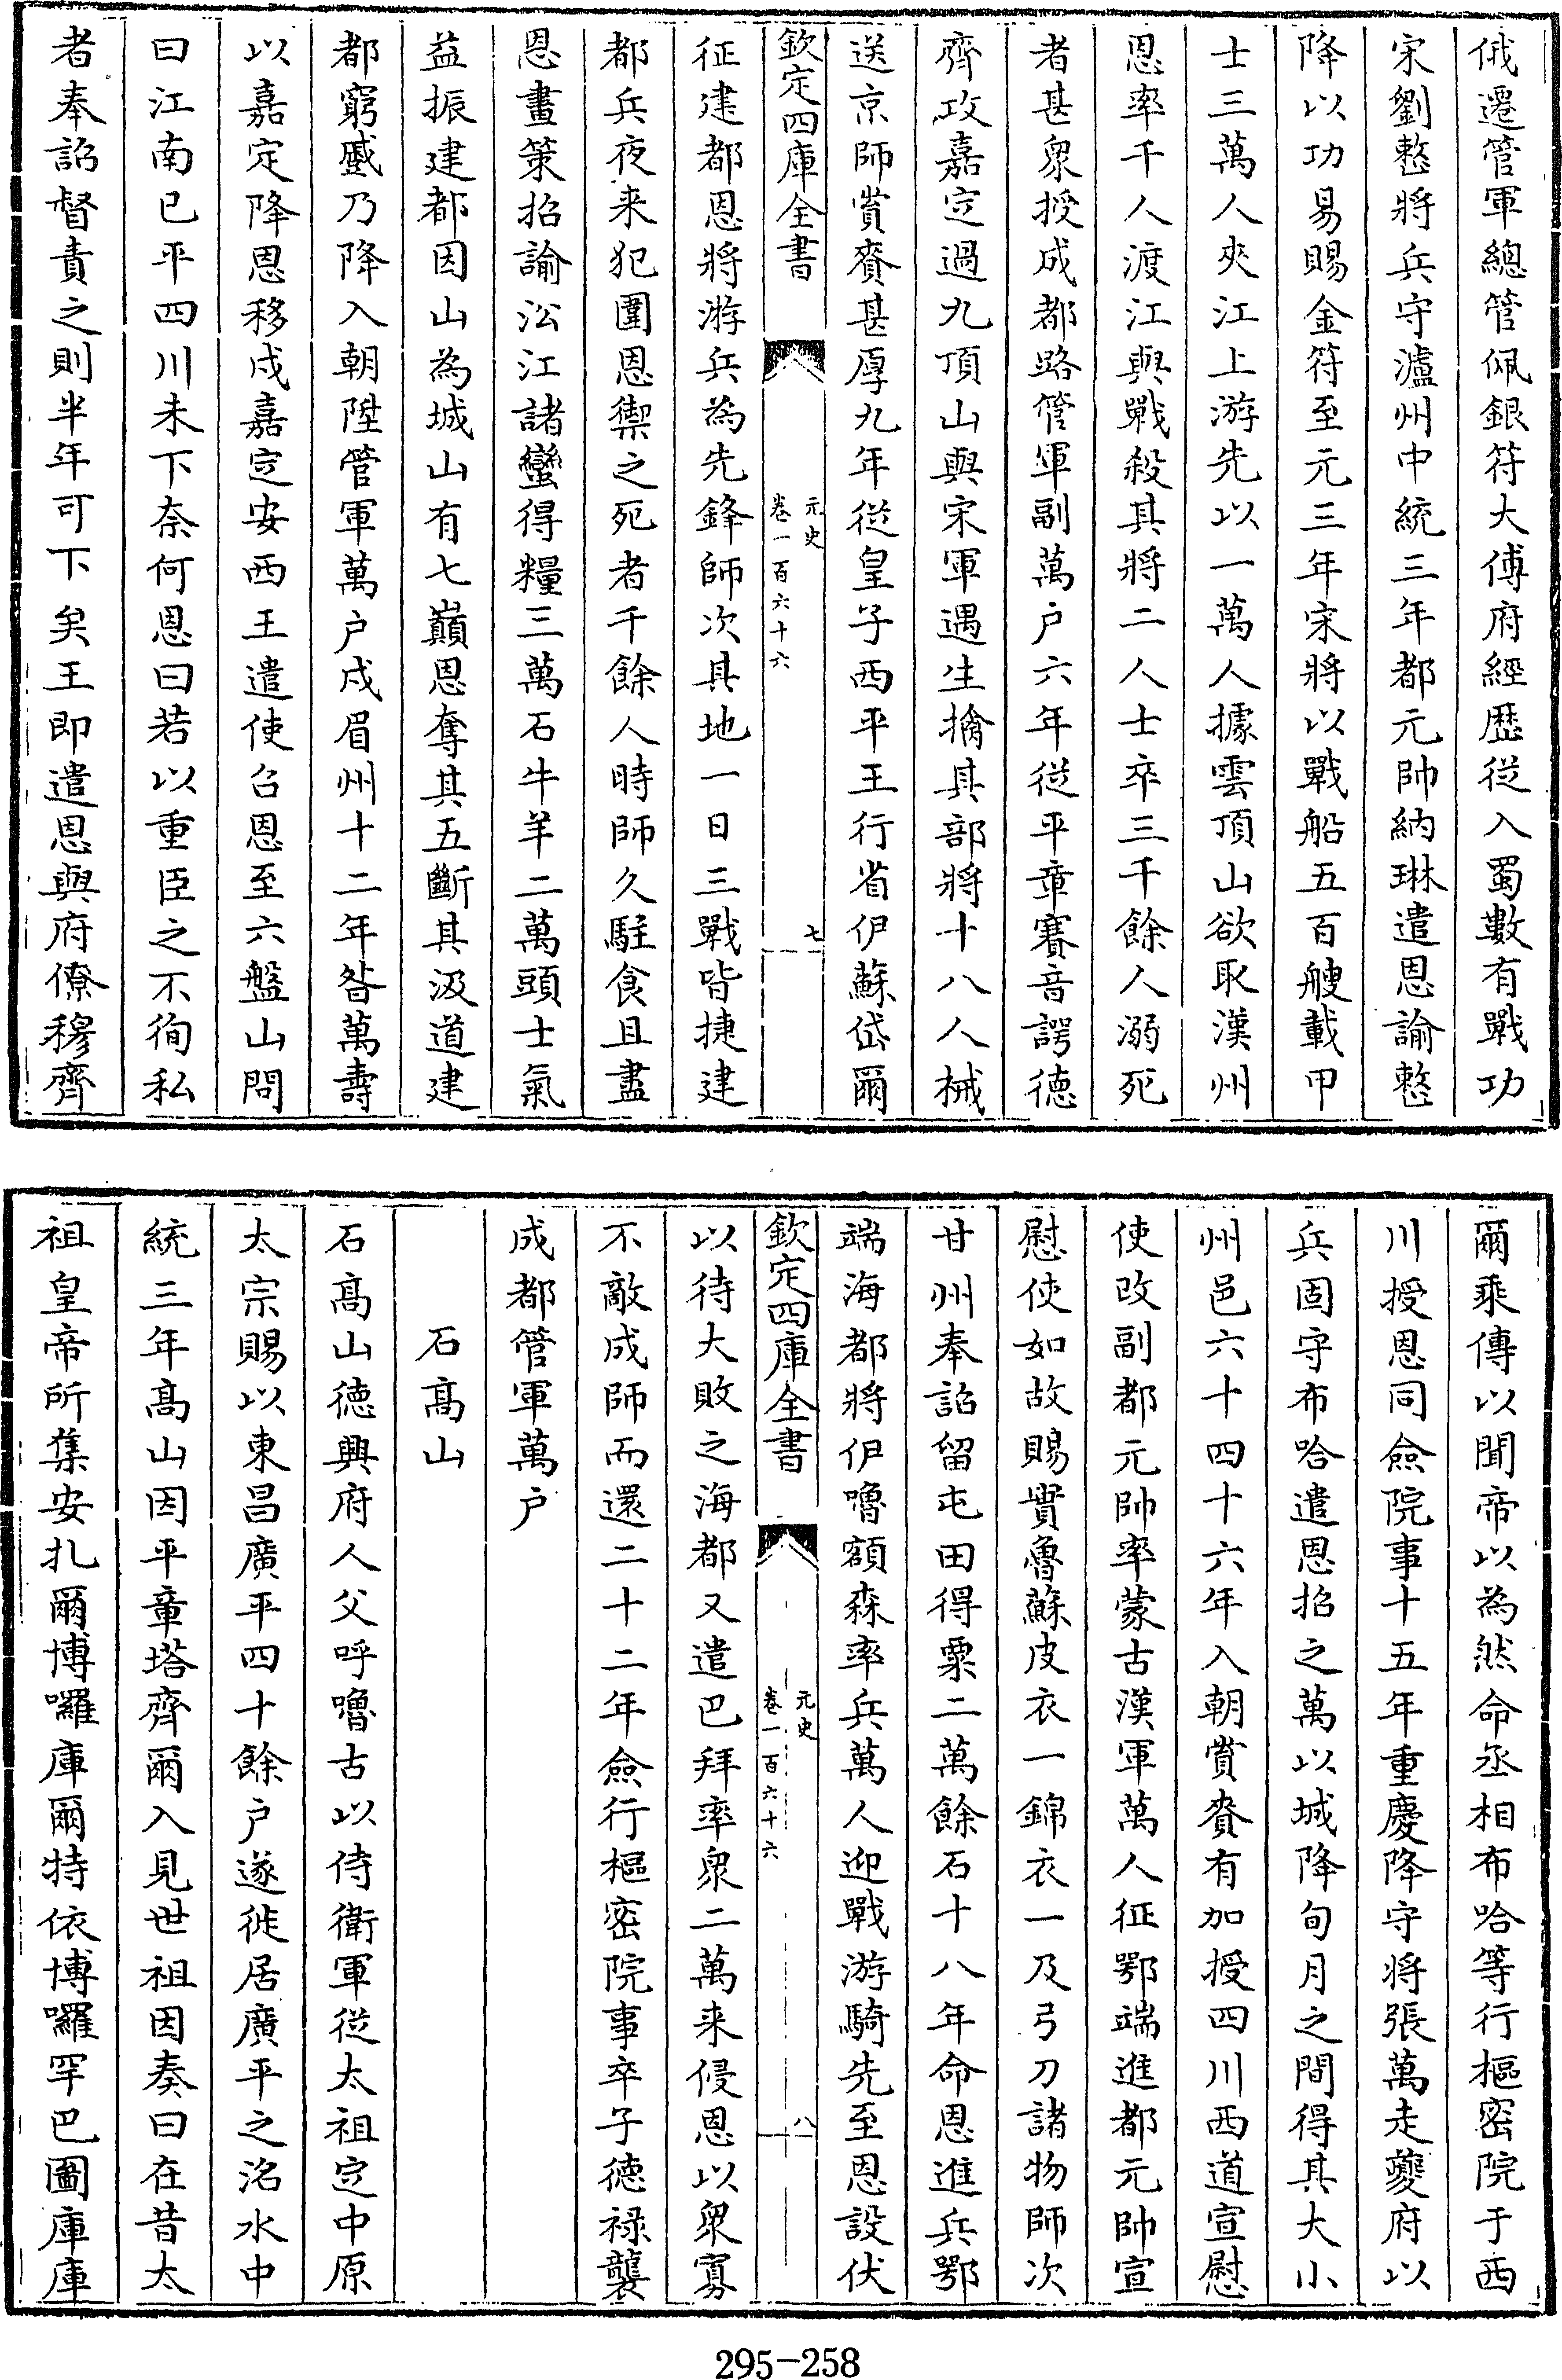 俄遷管軍總管佩銀符大傅府經歴從入蜀數有戰功
宋劉整將兵守瀘州中統三年都元帥納琳遣恩諭整
降以功易賜金符至元三年宋將以戰船五百艘載甲
士三萬人夾江上游先以一萬人據雲頂山欲取漢州
恩率千人渡江與戰殺其將二人士卒三千餘人溺死
者甚衆授成都路管軍副萬户六年從平章賽音諤德
齊攻嘉定過九頂山與宋軍遇生擒其部將十八人械
送京師賞賚甚厚九年從皇子西平王行省伊蘇岱爾
欽定四庫全書
元史
卷一百六十六
七
征建都恩將游兵為先鋒師次其地一日三戰皆捷建
都兵夜来犯圍恩禦之死者千餘人時師久駐食且盡
恩畫策招諭㳂江諸蠻得糧三萬石牛羊二萬頭士氣
益振建都因山為城山有七巔恩奪其五斷其汲道建
都窮蹙乃降入朝陞管軍萬户戍眉州十二年昝萬壽
以嘉定降恩移戍嘉定安西王遣使召恩至六盤山問
曰江南已平四川未下奈何恩曰若以重臣之不徇私
者奉詔督責之則半年可下矣王即遣恩與府僚穆齊
爾乘傳以聞帝以為然命丞相布哈等行樞密院于西
川授恩同僉院事十五年重慶降守將張萬走夔府以
兵固守布哈遣恩招之萬以城降旬月之間得其大小
州邑六十四十六年入朝賞賚有加授四川西道宣慰
使改副都元帥率蒙古漢軍萬人征鄂端進都元帥宣
慰使如故賜實魯蘇皮衣一錦衣一及弓刀諸物師次
甘州奉詔留屯田得粟二萬餘石十八年命恩進兵鄂
端海都將伊嚕額森率兵萬人迎戰游騎先至恩設伏
欽定四庫全書
元史
卷一百六十六
八
以待大敗之海都又遣巴拜率衆二萬来侵恩以衆寡
不敵成師而還二十二年僉行樞密院事卒子徳禄襲
成都管軍萬户
石髙山
石髙山徳興府人父呼嚕古以侍衛軍從太祖定中原
太宗賜以東昌廣平四十餘户遂徙居廣平之洺水中
統三年髙山因平章塔齊爾入見世祖因奏曰在昔太
祖皇帝所集安扎爾博囉庫爾特依博囉罕巴圖庫庫
295-258